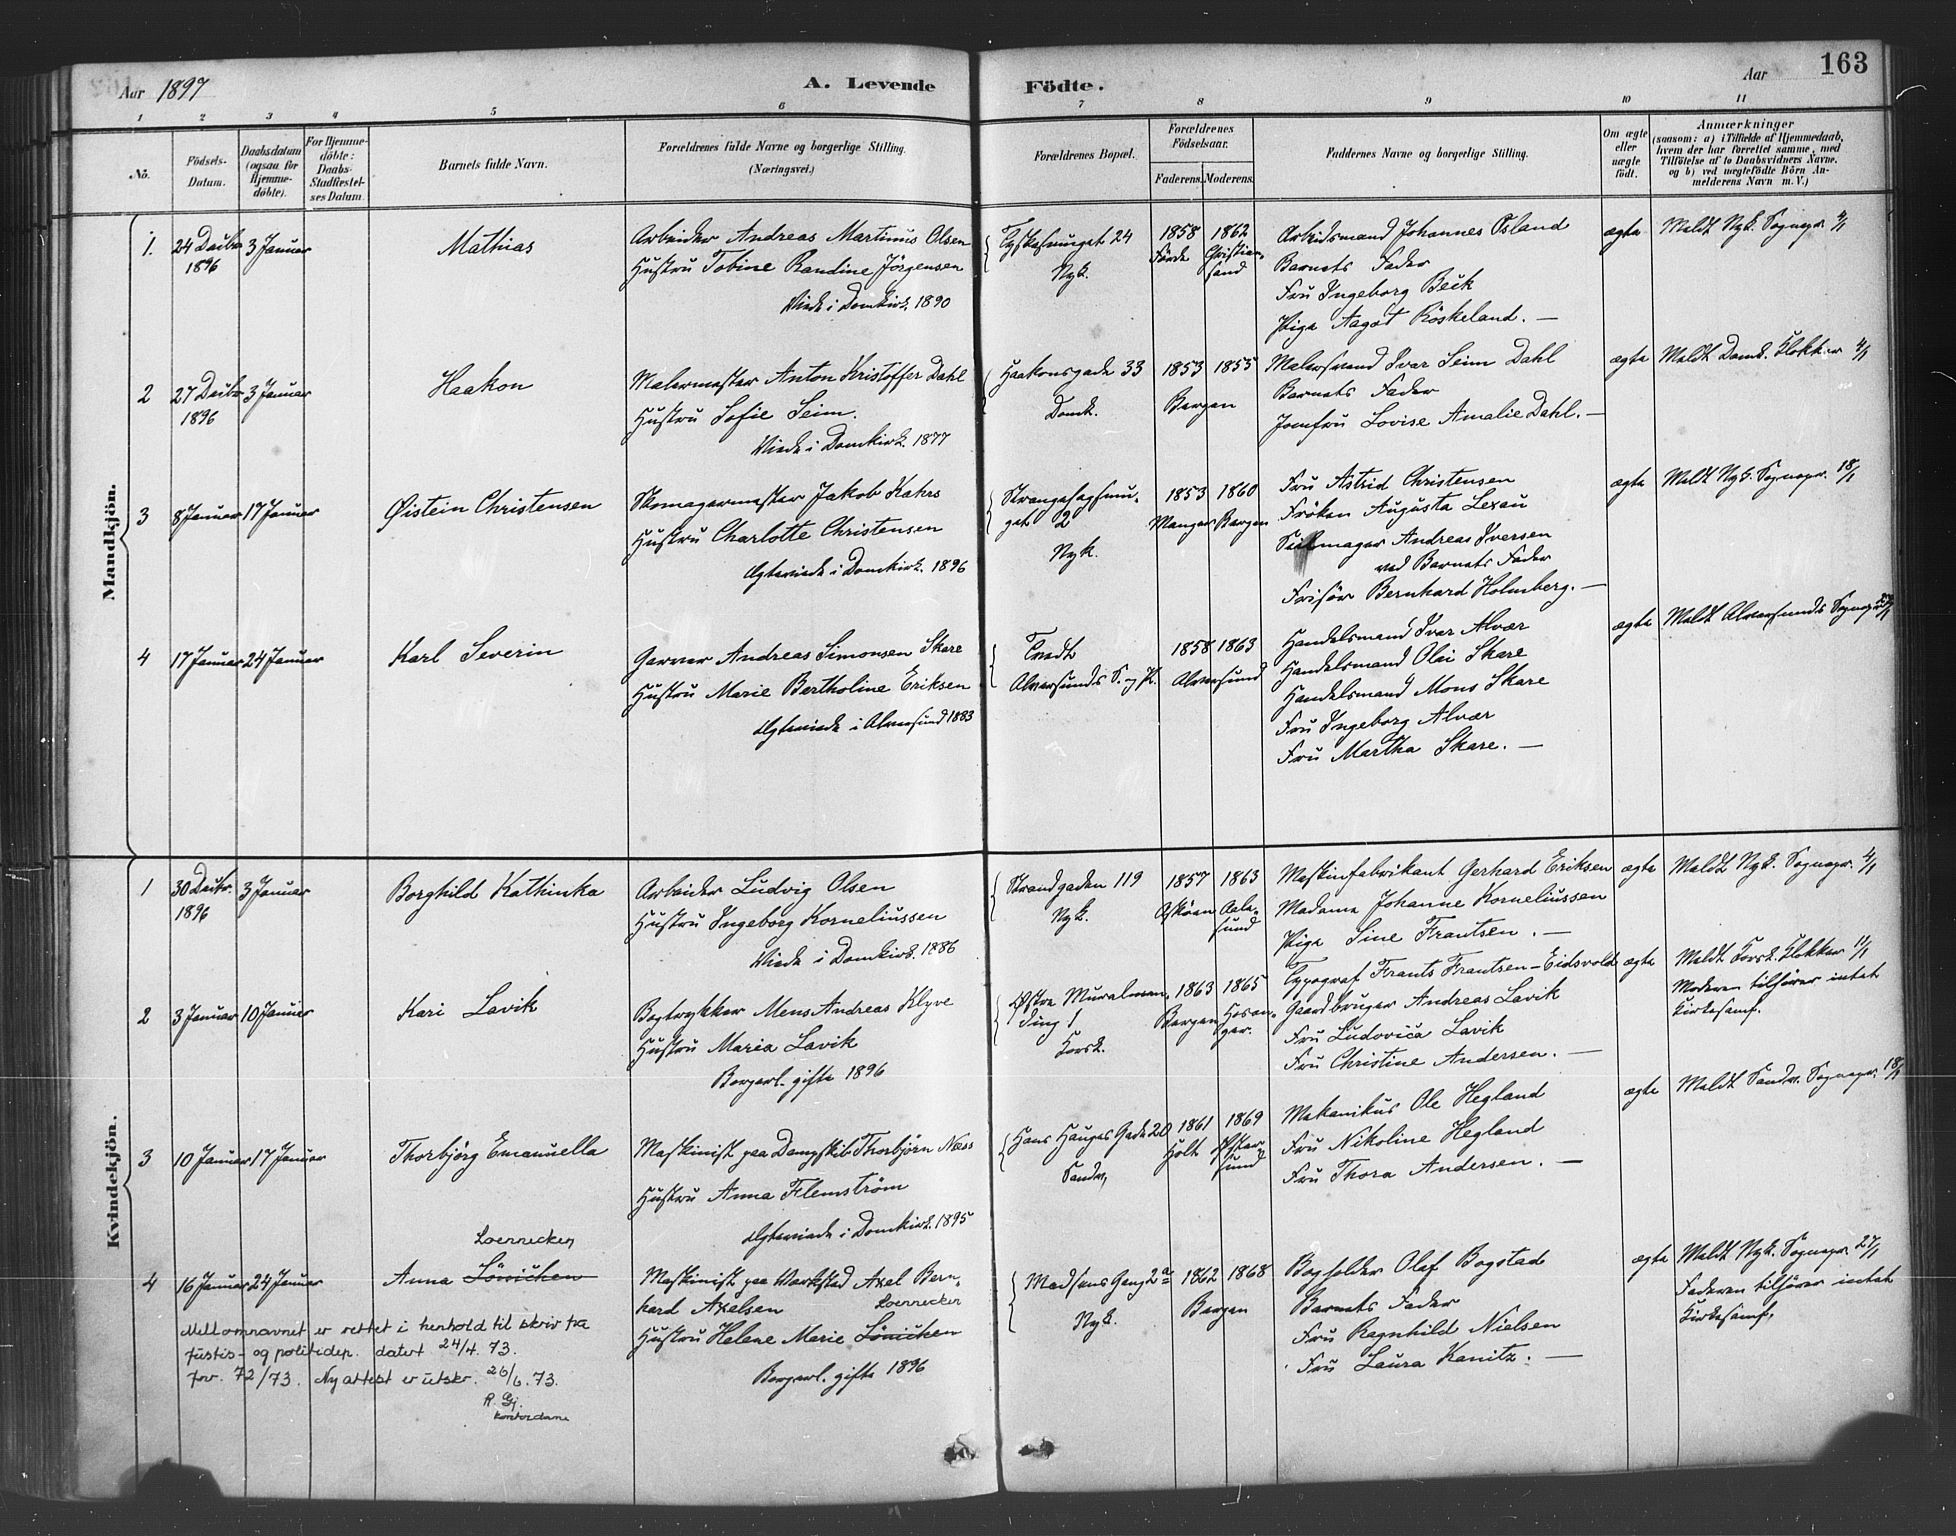 Aar 1897
A. Levende
Födte.
Aar
163
1 2 3 4 5 6 7 8 9 10 11
No.
Födsels-
Datum.
Daabsdatum
(ogsaa for
Hjemme-
döbte).
For Hjemme-
döbte:
Daabs-
Stadfæstel-
ses Datum.
Barnets fulde Navn.
Forældrenes fulde Navne og borgerlige Stilling.
(Næringsvei.)
Forældrenes Bopæl.
Forældrenes
Födselsaar.
Faderens. Moderens.
Faddernes Navne og borgerlige Stilling.
Om ægte
eller
uægte
födt.
Anmærkninger
(saasom: a) i Tilfælde af Hjemmedaab,
hvem der har forrettet samme, med
Tilföielse af to Daabsvidners Navne.
og b) ved uægtefödte Börn An-
melderens Navn m. V.)
Mandkjön.
1. 24 Decbr 1896
3 Januar
Mathias
Arbeider Andreas Martinus Olsen
Hustru Tobine Randine Jörgensen
Viede i Domkirk. 1890
Tyskesmuget 24
Nyk.
1858 Förde
1862 Christian-
sand
Arbeidsmand Johannes Osland
Barnets Fader
Fru Ingeborg Beck
Pige Aagot Röskeland. —
ægte
Meldt Nyk. Sognepr. 4/1
2 27 Decbr 1896
3 Januar
Haakon
Malermester Anton Kristoffer Dahl
Hustru Sofie Seim.
Viede i Domkirk. 1877
Haakonsgade 33
Domk.
1853 1855
Bergen
Malersvend Ivar Seim Dahl
Barnets Fader
Jomfru Lovise Amalie Dahl. —
ægte
Meldt Domk. Klokker 4/1
3 8 Januar 17 Januar
Øistein Christensen
Skomagermester Jakob Kahrs
Hustru Charlotte Christensen
Ægteviede i Domkirk. 1896
Strangehagsmu-
get 2
Nyk.
1853 1860
Manger Bergen
Fru Astrid Christensen
Fröken Augusta Lexau
Seilmager Andreas Iversen
ved Barnets Fader
Frisör Bernhard Holmberg. —
ægte
Meldt Nyk. Sognepr. 18/1
4 17 Januar 24 Januar
Karl Severin
Garver Andreas Simonsen Skare
Hustru Marie Bertholine Eriksen
Ægteviede i Alversund 1883
Tvedt
Alversunds S. og P.
1858 1863
Alversund
Handelsmand Ivar Alvær
Handelsmand Olai Skare
Handelsmand Mons Skare
Fru Ingeborg Alvær
Fru Martha Skare. —
ægte
Meldt Alversunds Sognepr.
Kvindekjön.
1 30 Decbr. 1896
3 Januar
Borghild Kathinka
Arbeider Ludvig Olsen
Hustru Ingeborg Korneliussen
Viede i Domkirk. 1886
Strandgaden 119
Nyk.
1857 Askøen
1863 Aale-
sund
Maskinfabrikant Gerhard Eriksen
Madame Johanne Korneliussen
Pige Sine Frantsen. —
ægte
Meldt Nyk. Sognepr. 4/1
2 3 Januar 10 Januar
Kari Lavik
Bogtrykker Mens Andreas Klyve
Hustru Maria Lavik
Borgerl. gifte 1896
Østre Muralmen-
ding 1
Korsk.
1863 Bergen
1865 Hosan-
ger.
Typograf Frants Frantsen-Eidsvold
Gaardbruger Andreas Lavik
Fru Ludovica Lavik
Fru Christine Andersen. —
ægte
Meldt Korsk. Klokker 11/1
Moderen tilhører intet
Kirkesamf.
3 10 Januar 17 Januar
Thorbjörg Emanuella
Maskinist paa Dampskib Thorbjörn Næss
Hustru Anna Flemström
Ægteviede i Domkirk. 1895
Hans Hauges Gade 20
Sandv.
1861 Holt
1869 Östersund
Mekanikus Ole Hegland
Fru Nikoline Hegland
Fru Thora Andersen. —
ægte
Meldt Sandv. Sognepr. 18/1
4 16 Januar 24 Januar
Loennecken
Anna Lönichen
Maskinist paa Værksted Axel Bern-
hard Axelsen
Loennecken
Hustru Helene Marie Lönichen
Borgerl. gifte 1896
Madsens Gang 2a
Nyk.
1862 1868
Bergen
Bogholder Olaf Bogstad
Barnets Fader
Fru Ragnhild Nielsen
Fru Laura Kanitz. —
ægte
Meldt Nyk. Sognepr. 27/1
Faderen tilhører intet
Kirkesamf.
Mellomnavnet er rettet i henhold til skriv fra
justis- og politidep. datert 24/4.73.
jnr. 72/73. Ny attest er utskr. 26/6.73.
R. Gj.
kontordame